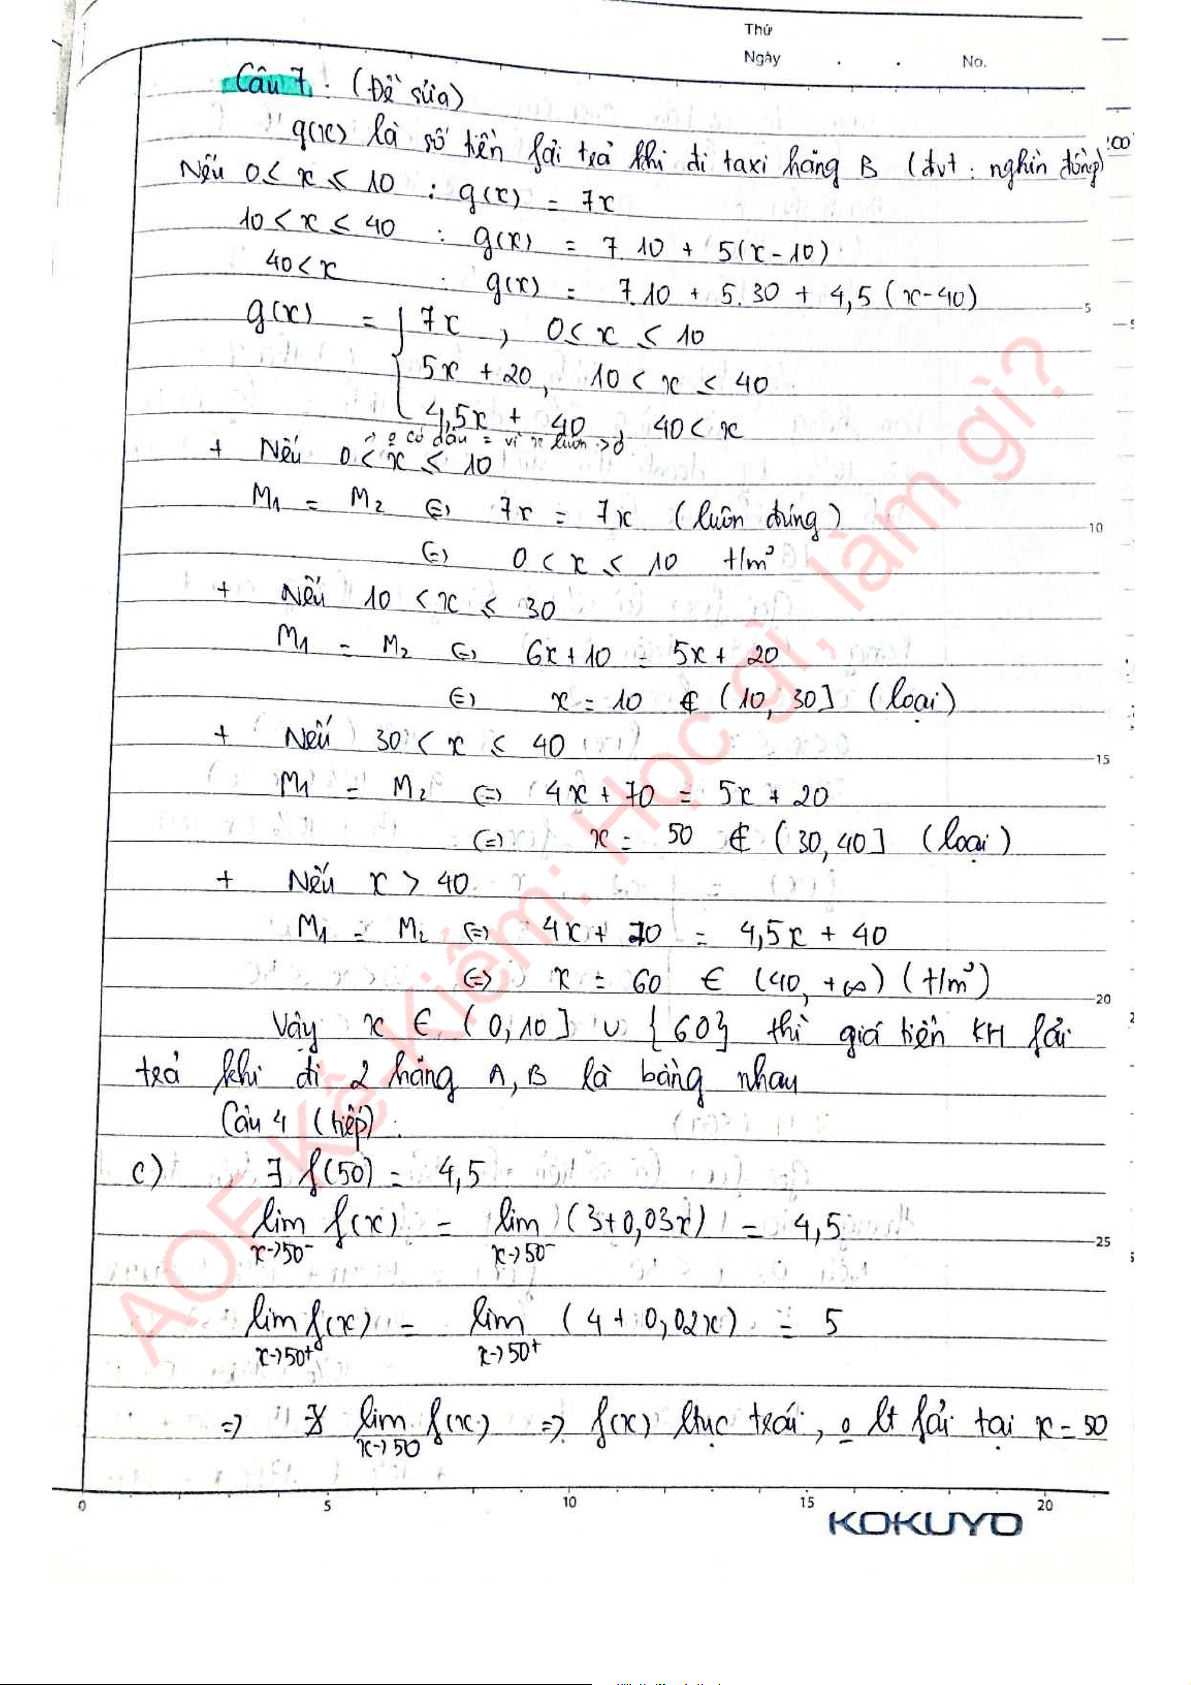 Thứ
Ngày . . No.
Câu 7 : (Đề sửa)
g(x) là số tiền fải trả khi đi taxi hãng B (đvt : nghìn đồng)
:00
Nếu 0 ≤ x ≤ 10 : g(x) = 7x
10 < x ≤ 40 : g(x) = 7.10 + 5(x-10)
40 < x : g(x) = 7.10 + 5.30 + 4,5 (x-40)
5
g(x) = { 7x , 0 ≤ x ≤ 10
5x + 20, 10 < x ≤ 40
4,5x + 40 , 40 < x
→ o có dấu = vì x luôn > 0
+ Nếu 0 < x ≤ 10
M1 = M2 (=) 7x = 7x (luôn đúng)
10
(=) 0 < x ≤ 10 t/m²
+ Nếu 10 < x ≤ 30
M1 = M2 (=) 6x+10 = 5x + 20
(=) x = 10 ∉ (10, 30] (loại)
+ Nếu 30 < x ≤ 40
15
M1 = M2 (=) 4x + 70 = 5x + 20
(=) x = 50 ∉ (30, 40] (loại)
+ Nếu x > 40
M1 = M2 (=) 4x + 70 = 4,5x + 40
(=) x = 60 ∈ (40, +∞) (t/m²)
20
Vậy x ∈ (0, 10] ∪ {60} thì giá tiền KH fải
trả khi đi 2 hãng A, B là bằng nhau
Câu 4 (tiếp) :
c) ∃ f(50) = 4,5
lim f(x) = lim (3+0,03x) = 4,5
x→50⁻ x→50⁻
25
lim f(x) = lim (4 + 0,02x) = 5
x→50⁺ x→50⁺
=> ∄ lim f(x) => f(x) ltục trái, o lt fải tại x = 50
x→50
0 5 10 15 20
KOKUYO
AOF Kế-Kiểm: Học gì, làm gì?